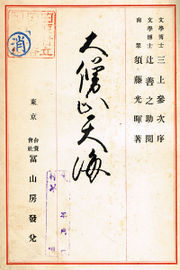 文學博士 三上參次序
文學博士 辻善之助閲
須藤光暉著
大僧正天海
東京 合資會社 冨山房發兌
消